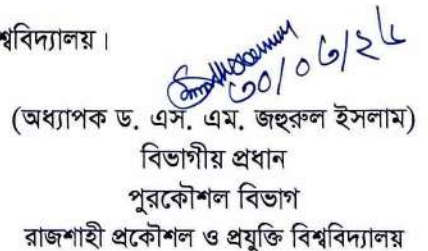 শ্ববিদ্যালয়।
৩০/০৬/২৫
(অধ্যাপক ড. এস. এম. জহুরুল ইসলাম)
বিভাগীয় প্রধান
পুরকৌশল বিভাগ
রাজশাহী প্রকৌশল ও প্রযুক্তি বিশ্ববিদ্যালয়